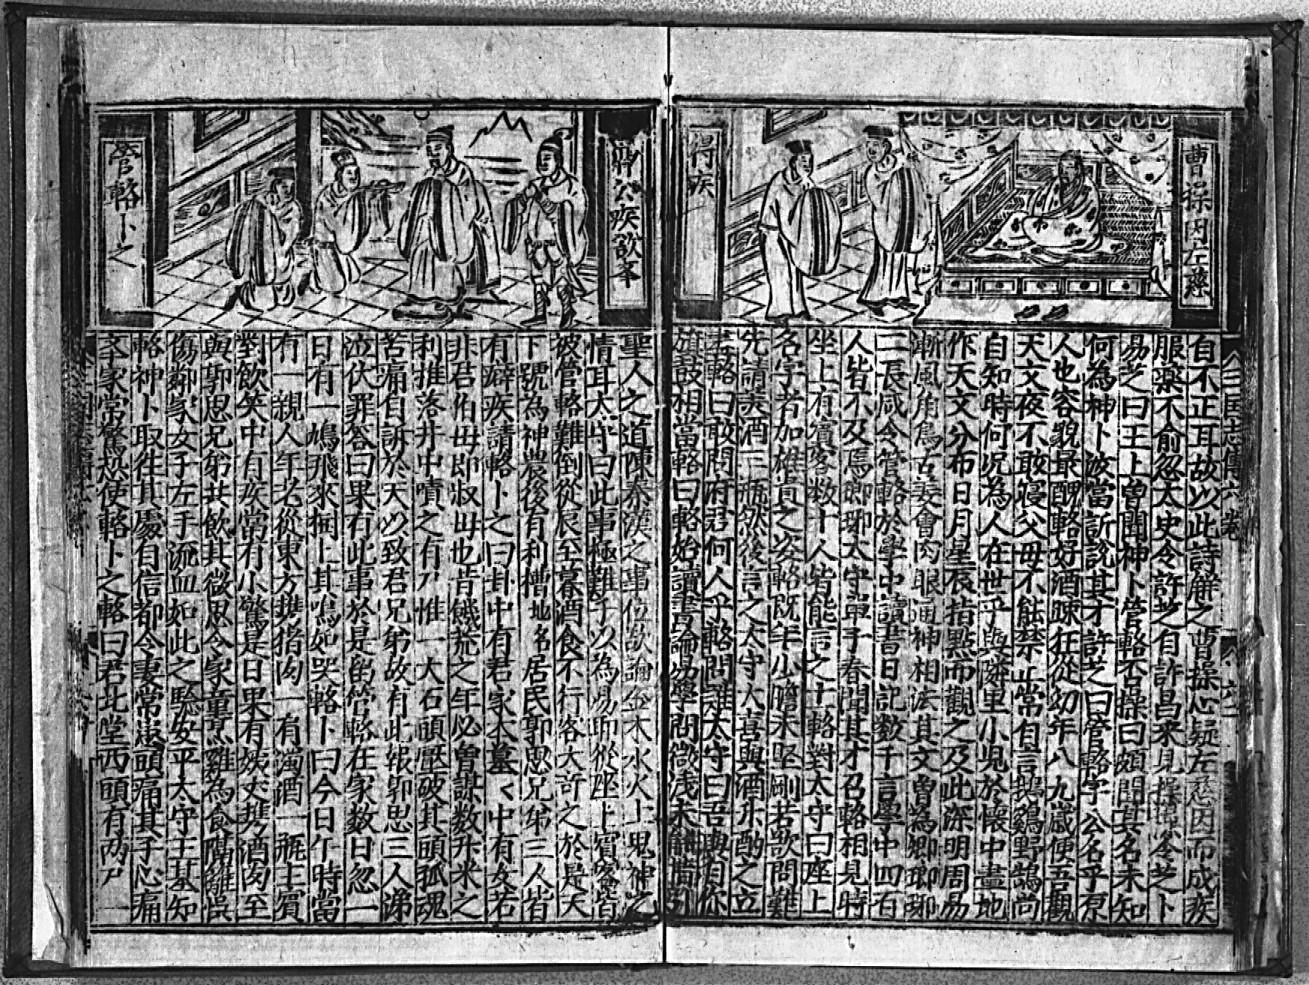 曹操因左慈
得疾
自不正耳故以此詩解之曹操心疑左慈因而成疾
服藥不愈忽太史令許芝自許昌來見操操令芝卜
易芝曰王上曾聞神卜管輅否操曰頗聞其名未知
何為神卜汝當訴說其才許芝曰管輅字公名平原
人也容貌最醜輅好酒踈狂從幼年八九歲便喜觀
天文夜不敢寢父母不能禁止常自言鷄鷄野鵠尚
自知時何况為人在世乎與隣里小兒於懷中畫地
作天文分布日月星辰指點而觀之及此深明周易
漸風角鳥占姜會肉眼通神相法其文曾為卿瑯琊
二長咸令管輅於學中讀書日記数千言學中四百
人皆不及焉瑯琊太守單子春聞其才召輅相見時
坐上有賓客数十人皆能言之士輅對太守曰座上
名字者加雄貴之姿輅既年少膽未堅剛若欲問難
先請美酒三瓶然後言之太守大喜與酒乐酌之立
盡輅曰敢問府君何人乎輅問難太守曰吾與自你
旗鼓相當輅曰輅始讀書論易學問微淺未能尚引
疾欲卒
管輅卜之
聖人之道陳秦漢之事位欲論金木水火土鬼神之
情耳太守曰此事極難子以為易即從座上賓客皆
被管輅難倒從辰至暮酒食不行客大許之於是天
下號為神農後有利漕地名居民郭恩兄弟三人皆
有癖疾請輅卜之曰卦中有君家本墓く中有女若
非君伯母即叔母也昔饑荒之年必曾謀数升米之
利推落井中噴之有尸惟一大石頭壓破其頭孤魂
苦痛自訴於天以致君兄弟故有此報郭恩三人涕
泣伏罪答曰果有此事於是留管輅在家数日忽一
日有一鳩飛來桐上其鳴如哭輅卜曰今日午時當
有一親人年老從東方携猪肉一有濁酒一瓶主賓
對飲笑中有疾當有小驚是日果有姨丈携酒肉至
與郭恩兄弟共飲其微恩令家童煮雞為食隔籬誤
傷鄰家女子左手流血如此之驗安平太守王基知
輅神卜取徃其處自信都令妻常患頭痛其子心痛
冬家常驚恐使輅卜之輅曰君此堂西頭有两尸一